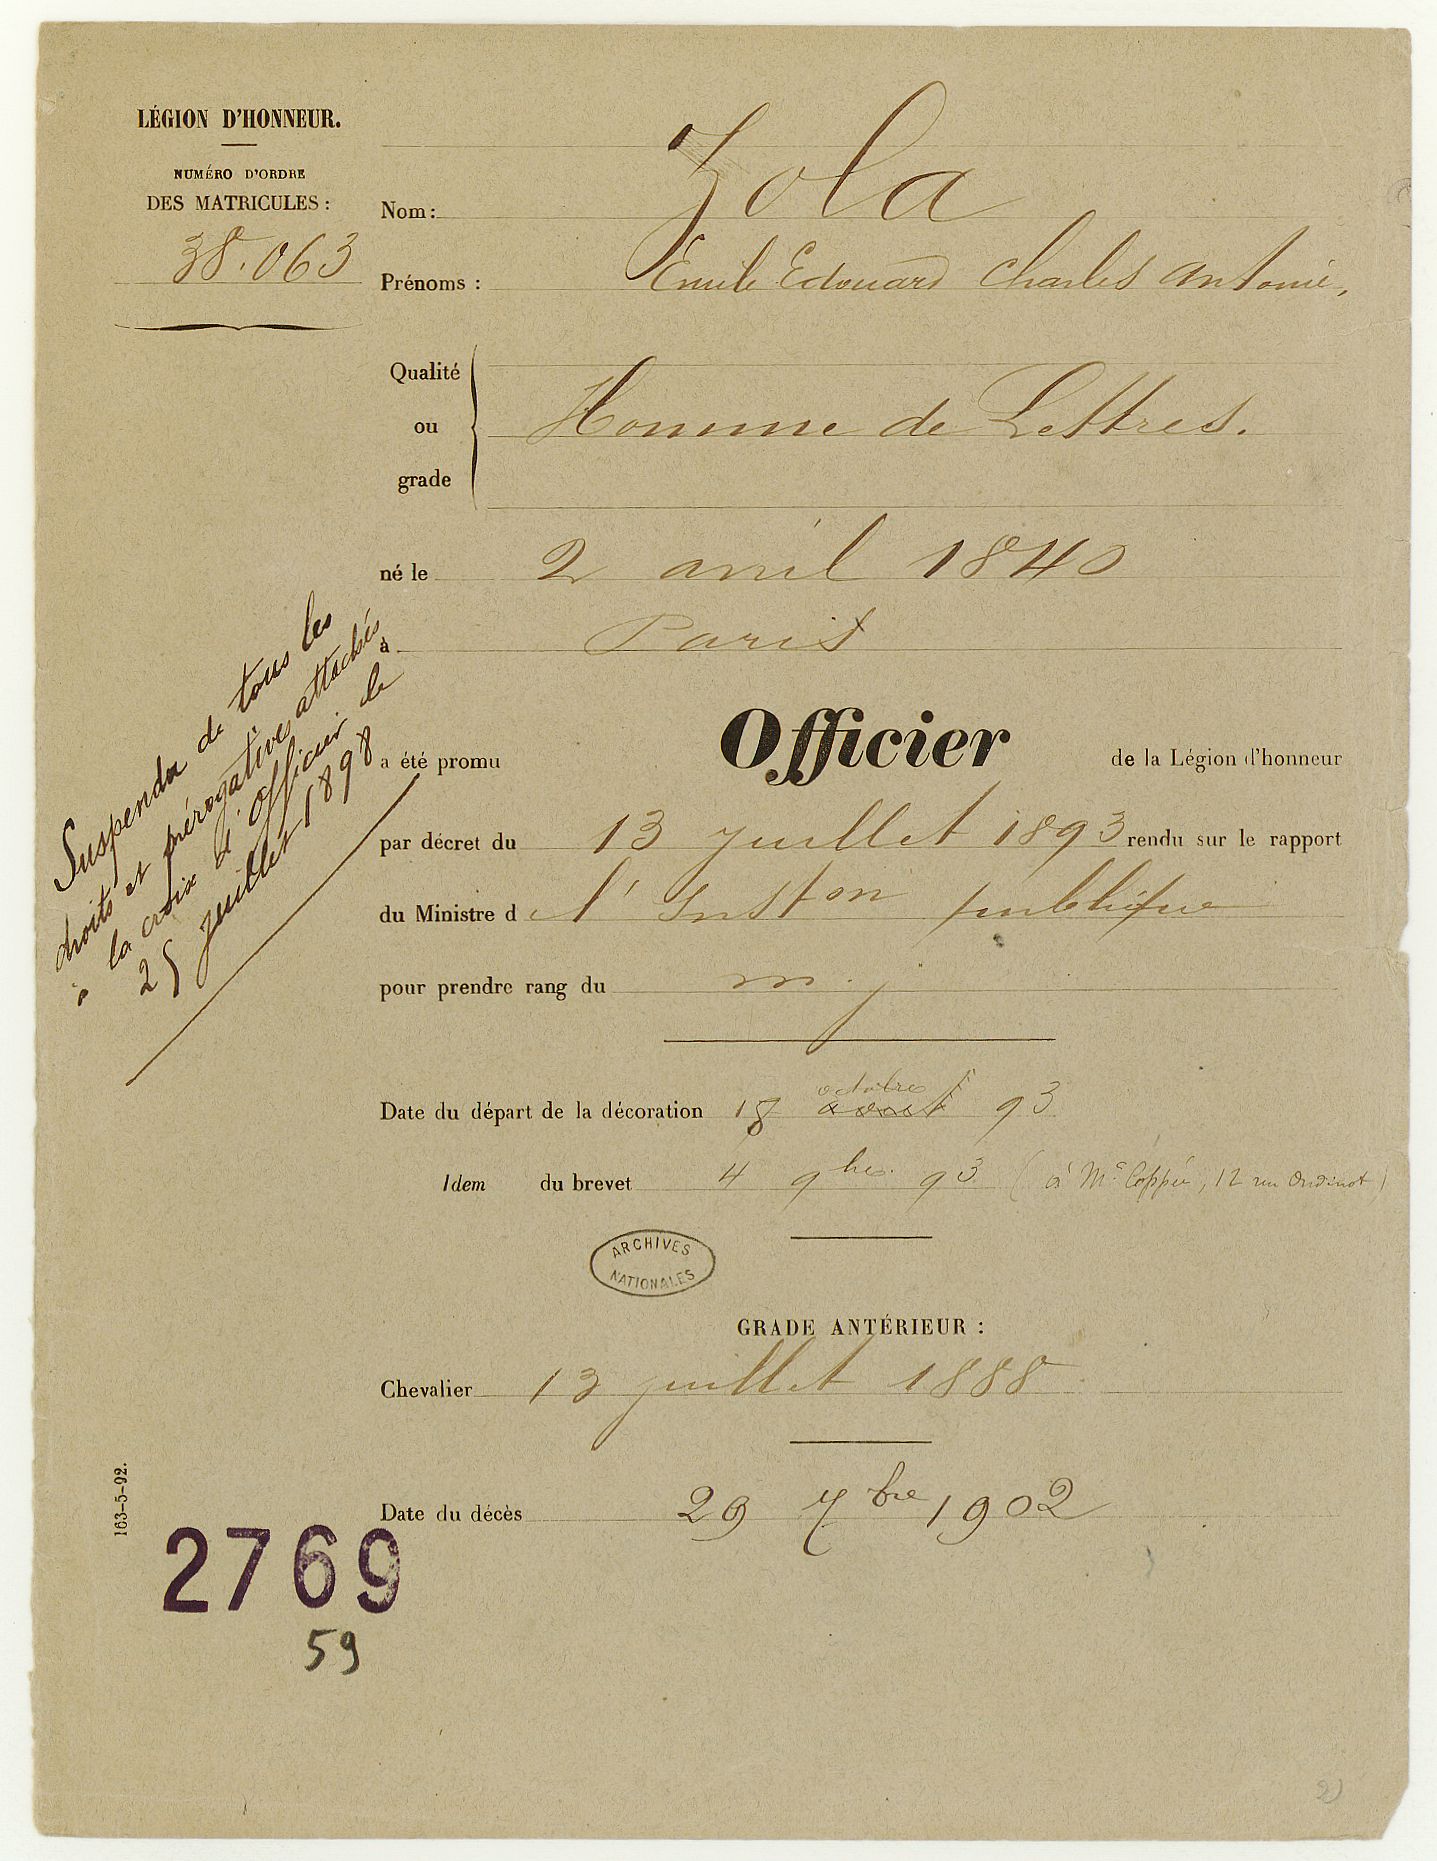 LÉGION D'HONNEUR.
NUMÉRO D'ORDRE
DES MATRICULES :
38.063
Nom : Zola
Prénoms : Emile Edouard Charles Antoine,
Qualité
ou
grade
Homme de Lettres.
né le 2 avril 1840
à Paris
Suspendu de tous les
droits et prérogatives attachés
à la croix d'Officier le
25 juillet 1898
a été promu Officier de la Légion d'honneur
par décret du 13 juillet 1893 rendu sur le rapport
du Ministre d l'Inston publique
pour prendre rang du m. j
octobre
Date du départ de la décoration 18 août 93
Idem du brevet 4 9bre. 93 (à Mr Coppée, 12 rue Oudinot)
ARCHIVES
NATIONALES
GRADE ANTÉRIEUR :
Chevalier 13 juillet 1888
Date du décès 29 7bre 1902
163-5-92.
2769
59